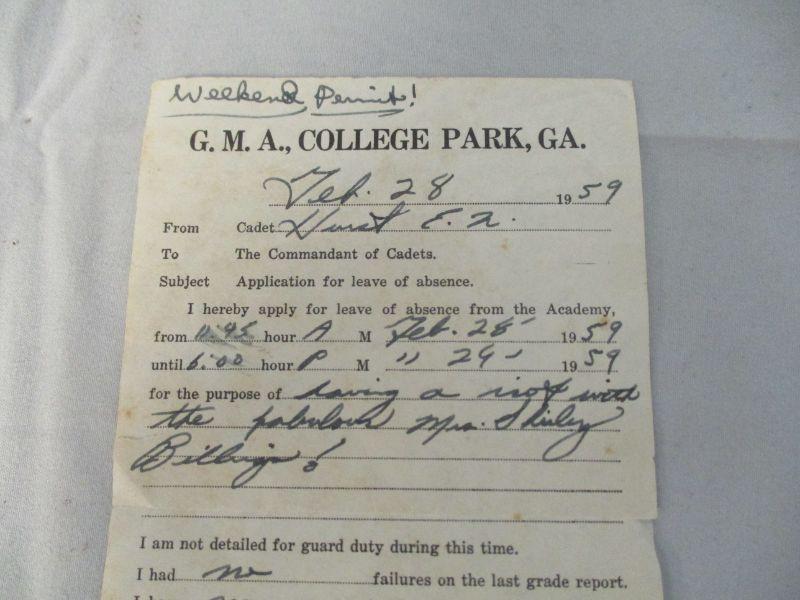 Weekend Permit!
G. M. A., COLLEGE PARK, GA.
Feb. 28 1959
From Cadet Hurst E. R.
To The Commandant of Cadets.
Subject Application for leave of absence.
I hereby apply for leave of absence from the Academy,
from 11:45 hour A M Feb. 28 1959
until 6:00 hour P M " 29 1959
for the purpose of having a riot with
the fabulous Mrs. Shirley
Billings!
I am not detailed for guard duty during this time.
I had no failures on the last grade report.